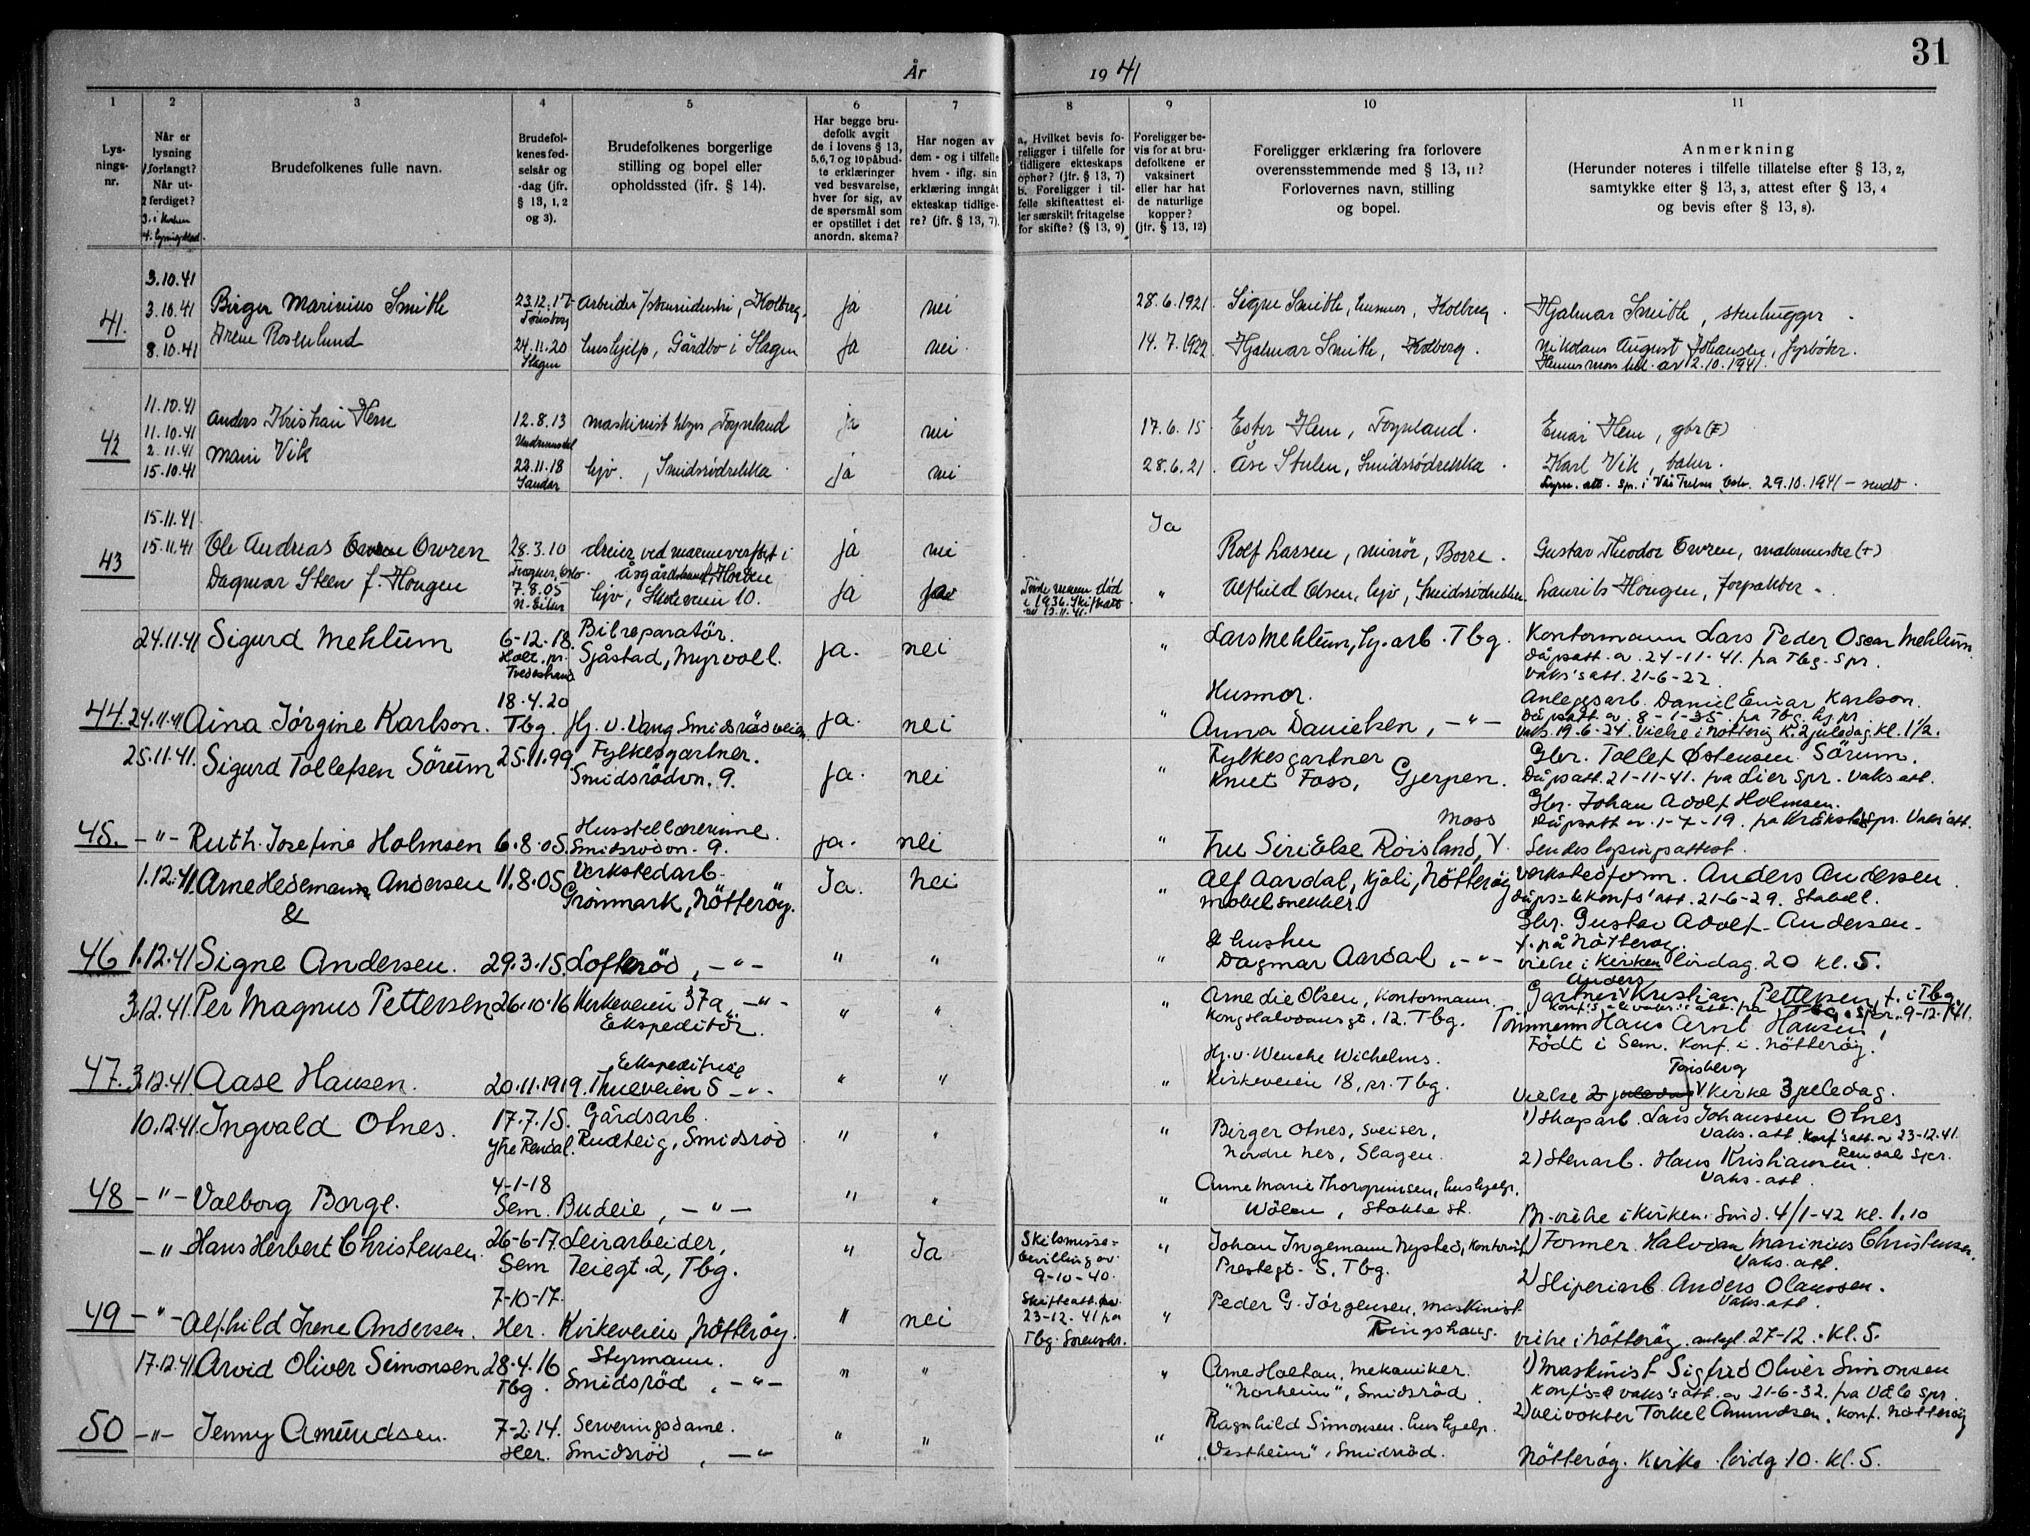 År 1941
31
1
2
3
4
5
6
7
8
9
10
11
Lys-
nings-
nr.
Når er
lysning
forlangt?
Når ut-
ferdiget?
Brudefolkenes fulle navn.
Brudefol-
kenes fød-
selsår og
-dag (jfr.
§ 13, 1, 2
og 3).
Brudefolkenes borgerlige
stilling og bopel eller
opholdssted (jfr. § 14).
Har begge bru-
defolk avgit
de i lovens § 13,
5, 6, 7 og 10 påbud-
te erklæringer
ved besvarelse,
hver for sig, av
de spørsmål som
er opstillet i det
anordn. skema?
Har nogen av
dem - og i tilfelle
hvem - iflg. sin
erklæring inngått
ekteskap tidlige-
re? (jfr. § 13, 7).
a. Hvilket bevis fo-
religger i tilfelle for
tidligere ekteskaps
ophør? (jfr. § 13, 7)
b. Foreligger i til-
felle skifteattest el-
ler særskilt fritagelse
for skifte? (§ 13, 9)
Foreligger be-
vis for at bru-
defolkene er
vaksinert
eller har hat
de naturlige
kopper?
(jfr. § 13, 12)
Foreligger erklæring fra forlovere
overensstemmende med § 13, 11?
Forlovernes navn, stilling
og bopel.
Anmerkning
(Herunder noteres i tilfelle tillatelse efter § 13, 2,
samtykke efter § 13, 3, attest efter § 13, 4
og bevis efter § 13, 8).
3.10.41
41. 3.10.41 Birger Marinius Smith 23.12.17 Arbeider i/stenindustri, Kolberg. ja nei 28.6.1921. Signe Smith, husmor, Kolberg. Hjalmar Smith, stenhugger.
0 Tønsberg
8.10.41 Irene Rosenlund 24.11.20 hushjelp, Gårdbo i Slagen ja nei 14.7.1922 Hjalmar Smith, Kolberg. Nikolaus August Johansen, fyrbøter.
Slagen Hennes mors till. av 2.10.1941.
11.10.41
42 11.10.41 Anders Kristian Hem 12.8.13 maskinist Føynland ja nei 17.6.15 Ester Hem, Føynland. Einar Hem, gbr (†)
2.11.41 Undrumsdal
15.10.41 Mari Vik 22.11.18 hjv., Smidsrødrekka. ja nei 28.6.21. Åse Stulen, Smidsrødrekka. Karl Vik, baker.
Sandar Lysn. att. spr. i Vår Frelser 29.10.1941 – sendt.
15.11.41 Ja
43 15.11.41 Ole Andreas Owren 28.3.10 dreier ved marineverftet i ja nei Rolf Larsen, minør, Borre. Gustav Theodor Owren, malermester (†)
Frogner, Oslo. Åsgårdstrand, Horten
Dagmar Steen f. Hougen 7.8.05 hjv, Skoleveien 10. ja ja Første mann død " Alfhild Olsen, hjv, Smidsrødrekken. Laurits Hougen, forpakter.
N. Eiker i 1936. Skifteatt. 13.11.41.
24.11.41 Sigurd Mehlum 6-12-18. Bilreparatör. ja. nei " Lars Mehlum, hj.arb. Tbg. Kontormann Lars Peder Oscar Mehlum.
Holt, pr. Tvedestrand Sjåstad, Myrvoll. Dåpsatt. av 24-11-41. fra Tbg. Spr.
Vaks's att. 21-6-22
18.4.20 Husmor. Anleggsarb. Daniel Einar Karlson.
44. 24.11.41 Aina Jörgine Karlson. Tbg. Hj. v. Vang, Smidsrødveien ja. nei " Anna Danielsen, – " – Dåpsatt. av 8-1-35. fra Tbg.
Vaks. 19-6-24. Vielse i Nötteröy K. 2 juledag kl. 1½.
25.11.41. Sigurd Tollefsen Sörum 25.11.99 Fylkesgartner. ja. nei " Fylkesgartner Gbr. Tollef Östensen Sörum.
Smidsrødvn. 9. Knut Foss, Gjerpen. Dåpsatt. 21-11-41. fra Lier Spr. Vaks att.
Gbr. Johan Adolf Holmsen.
45. – " – Ruth Josefine Holmsen 6.8.05. Husstellærerinne. ja. nei " Fru Siri Else Röisland, V. Moss Dåpsatt av 1-7-19. fra Kråkstad Spr. Vaks'att.
Smidsrødvn. 9. Sendes lysningsattest.
1.12.41. Arne Hedemann Andersen 11.8.05 Verkstedarb. Ja. Nei " Alf Aardal, Kjöli, Nötteröy Verkstedform. Anders Andersen
& Grönmark, Nötteröy. Möbelsnekker. dåps- & konfs'att. 21-6-29. Stabell.
Gbr. Gustav Adolf Andersen.
& hustru †. på Nötteröy.
46 1.12.41 Signe Andersen. 29.3.15. Lofteröd, – " – " " Dagmar Aardal, – " – vielse i Kirken lördag 20 kl. 5.
3.12.41. Per Magnus Pettersen 26.10.16 Kirkeveien 37a, – " – " " " Arne die Olsen, kontormann. Gartner Anders Kristian Pettersen, †. i Tbg.
Ekspeditör. Kong Halvdansgt. 12. Tbg. konfs- & vaks's att. fra Tbg. Spr. 9-12-1941.
Tömmerm Hans Arnt Hansen,
Ekspeditrise Hj. v. Wenche Wilhelms. Födt i Sem. Konf. i Nötteröy.
47. 3.12.41 Aase Hansen. 20.11.1919. Thueveien 5 – " – " " " Kirkeveien 18, pr. Tbg. Tönsberg
vielse 2 juledag Kirke 3 juledag.
10.12.41. Ingvald Otnes. 17.7.15. Gårdsarb. " " " Birger Otnes, sveiser, 1) Skogarb. Lars Johanssen Otnes
Ytre Rendal. Rudteig, Smidsröd Nordre Nes, Slagen. Vaks. att. konf's att. av 23-12-41.
Rendal Spr.
2) Stenarb. Hans Kristiansen.
48 – " – Valborg Borge. 4-1-18 Vaks. att.
Sem. Budeie, – " – " " " Anne Marie Thorgrimsen, hushjelp,
Wölen, Stokke st. Br.vielse i Kirken. Sönd. 4/1-42 kl. 1.10
– " – Hans Herbert Christensen. 26-6-17. Leirarbeider, " Ja Skilsmisse- " Johan Ingemann Nysted, kontorist 1) Former Halvdan Marinius Christensen.
Sem Teiegt. 2, Tbg. bevilling av 9-10-40. Prestegt. 5, Tbg. Vaks. att.
2) Sliperiarb. Anders Olaussen.
7-10-17. Skifteatt. fra Vaks. att.
49 – " – Alfhild Irene Andersen. Her. Kirkeveien Nötteröy. " nei 23-12-41 fra " Peder G. Jörgensen, maskinist
Tbg. Sorenskr. Ringshaug. vielse i Nötteröy 27-12. Kl. 5.
17.12.41 Arvid Oliver Simonsen 28.4.16 Styrmann. " " " Arne Holtan, mekaniker 1) Maskinist Sigfred Oliver Simonsen
Tbg. Smidsröd, – " – "Norheim", Smidsröd. Konf's- & vaks's att. av 21-6-32. fra Våle Spr.
50 – " – Jenny Amundsen. 7-2.14. Serveringsdame. " " " Ragnhild Simonsen. hushjelp. 2) Veivokter Torkel Amundsen, konf. Nötteröy
Her. Smidsröd, – " – "Vestheim", Smidsröd. Nötteröy Kirke lördg. 10. kl. 5.